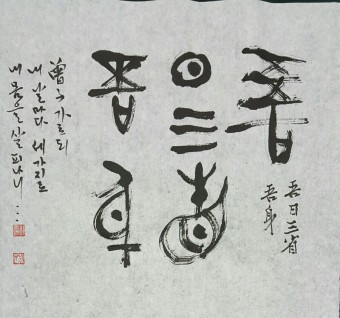 吾
日三省
吾身
吾日三省
吾身
曾子 가로되
내 날마다 세가지로
내 몸을 살피나니...